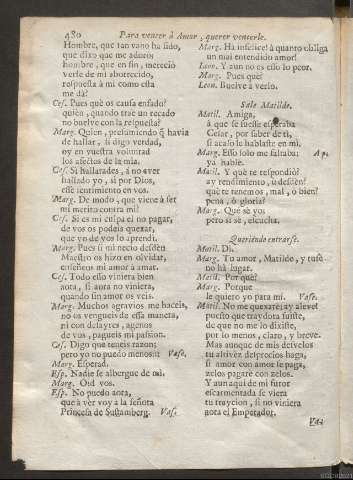 480 Para vencer à Amor, querer vencerle.
Hombre, que tan vano ha sido,
que dixo que me adorò:
hombre, que en fin, mereciò
verse de mi aborrecido,
respuesta à mi como esta
me dà?
Ces. Pues què os causa enfado?
quien, quando trae un recado
no buelve con la respuesta?
Marg. Quien, presumiendo q̃ havia
de hallar, si digo verdad,
oy en vuestra voluntad
los afectos de la mia.
Ces. Si hallarades, à no aver
hallado yo, si por Dios,
esse sentimiento en vos.
Marg. De modo, que viene à ser
mi merito contra mi?
Ces. Si es mi culpa el no pagar,
de vos os podeis quexar,
que yo de vos lo aprendì.
Marg. Pues si mi necio desdèn
Maestro os hizo en olvidar,
enseñeos mi amor à amar.
Ces. Todo esso viniera bien
aora, si aora no viniera,
quando sin amor os veis.
Marg. Muchos agravios me haceis,
no os vengueis de essa manera,
ni con desayres, agenos
de vos, pagueis mi passion.
Ces. Digo que teneis razon;
pero yo no puedo menos. Vase.
Marg. Esperad.
Esp. Nadie se albergue de mì.
Marg. Oid vos.
Esp. No puedo aora,
que à vèr voy a la señora
Princesa de Sustamberg. Vase.
Marg. Ha infelice! à quanto obliga
un mal entendido amor!
Leon. Y aun no es esso lo peor.
Marg. Pues què?
Leon. Buelve à verlo.
Sale Matilde.
Matil. Amiga,
à que se fuesse esperaba
Cesar, por saber de ti,
si acaso le hablaste en mì.
Marg. Esso solo me faltaba: Ap.
ya hablè.
Matil. Y què te respondiò?
ay rendimiento, ù desdèn?
què tenemos, mal, ò bien?
pena, ò gloria?
Marg. Què sè yo;
pero si sè, escucha.
Queriendo entrarse.
Matil. Di.
Marg. Tu amor, Matilde, y tuse
no hà lugar.
Matil. Por què?
Marg. Porque
le quiero yo para mì. Vase.
Matil. No me quexarè; ay aleve!
puesto que traydora fuiste,
de que no me lo dixiste,
por lo menos, claro, y breve.
Mas aunque de mis desvelos
tu altivèz desprecios haga,
si amor con amor se paga,
zelos pagarè con zelos.
Y aun aqui de mi furor
escarmentada se viera
tu traycion, si no viniera
aora el Emperador.